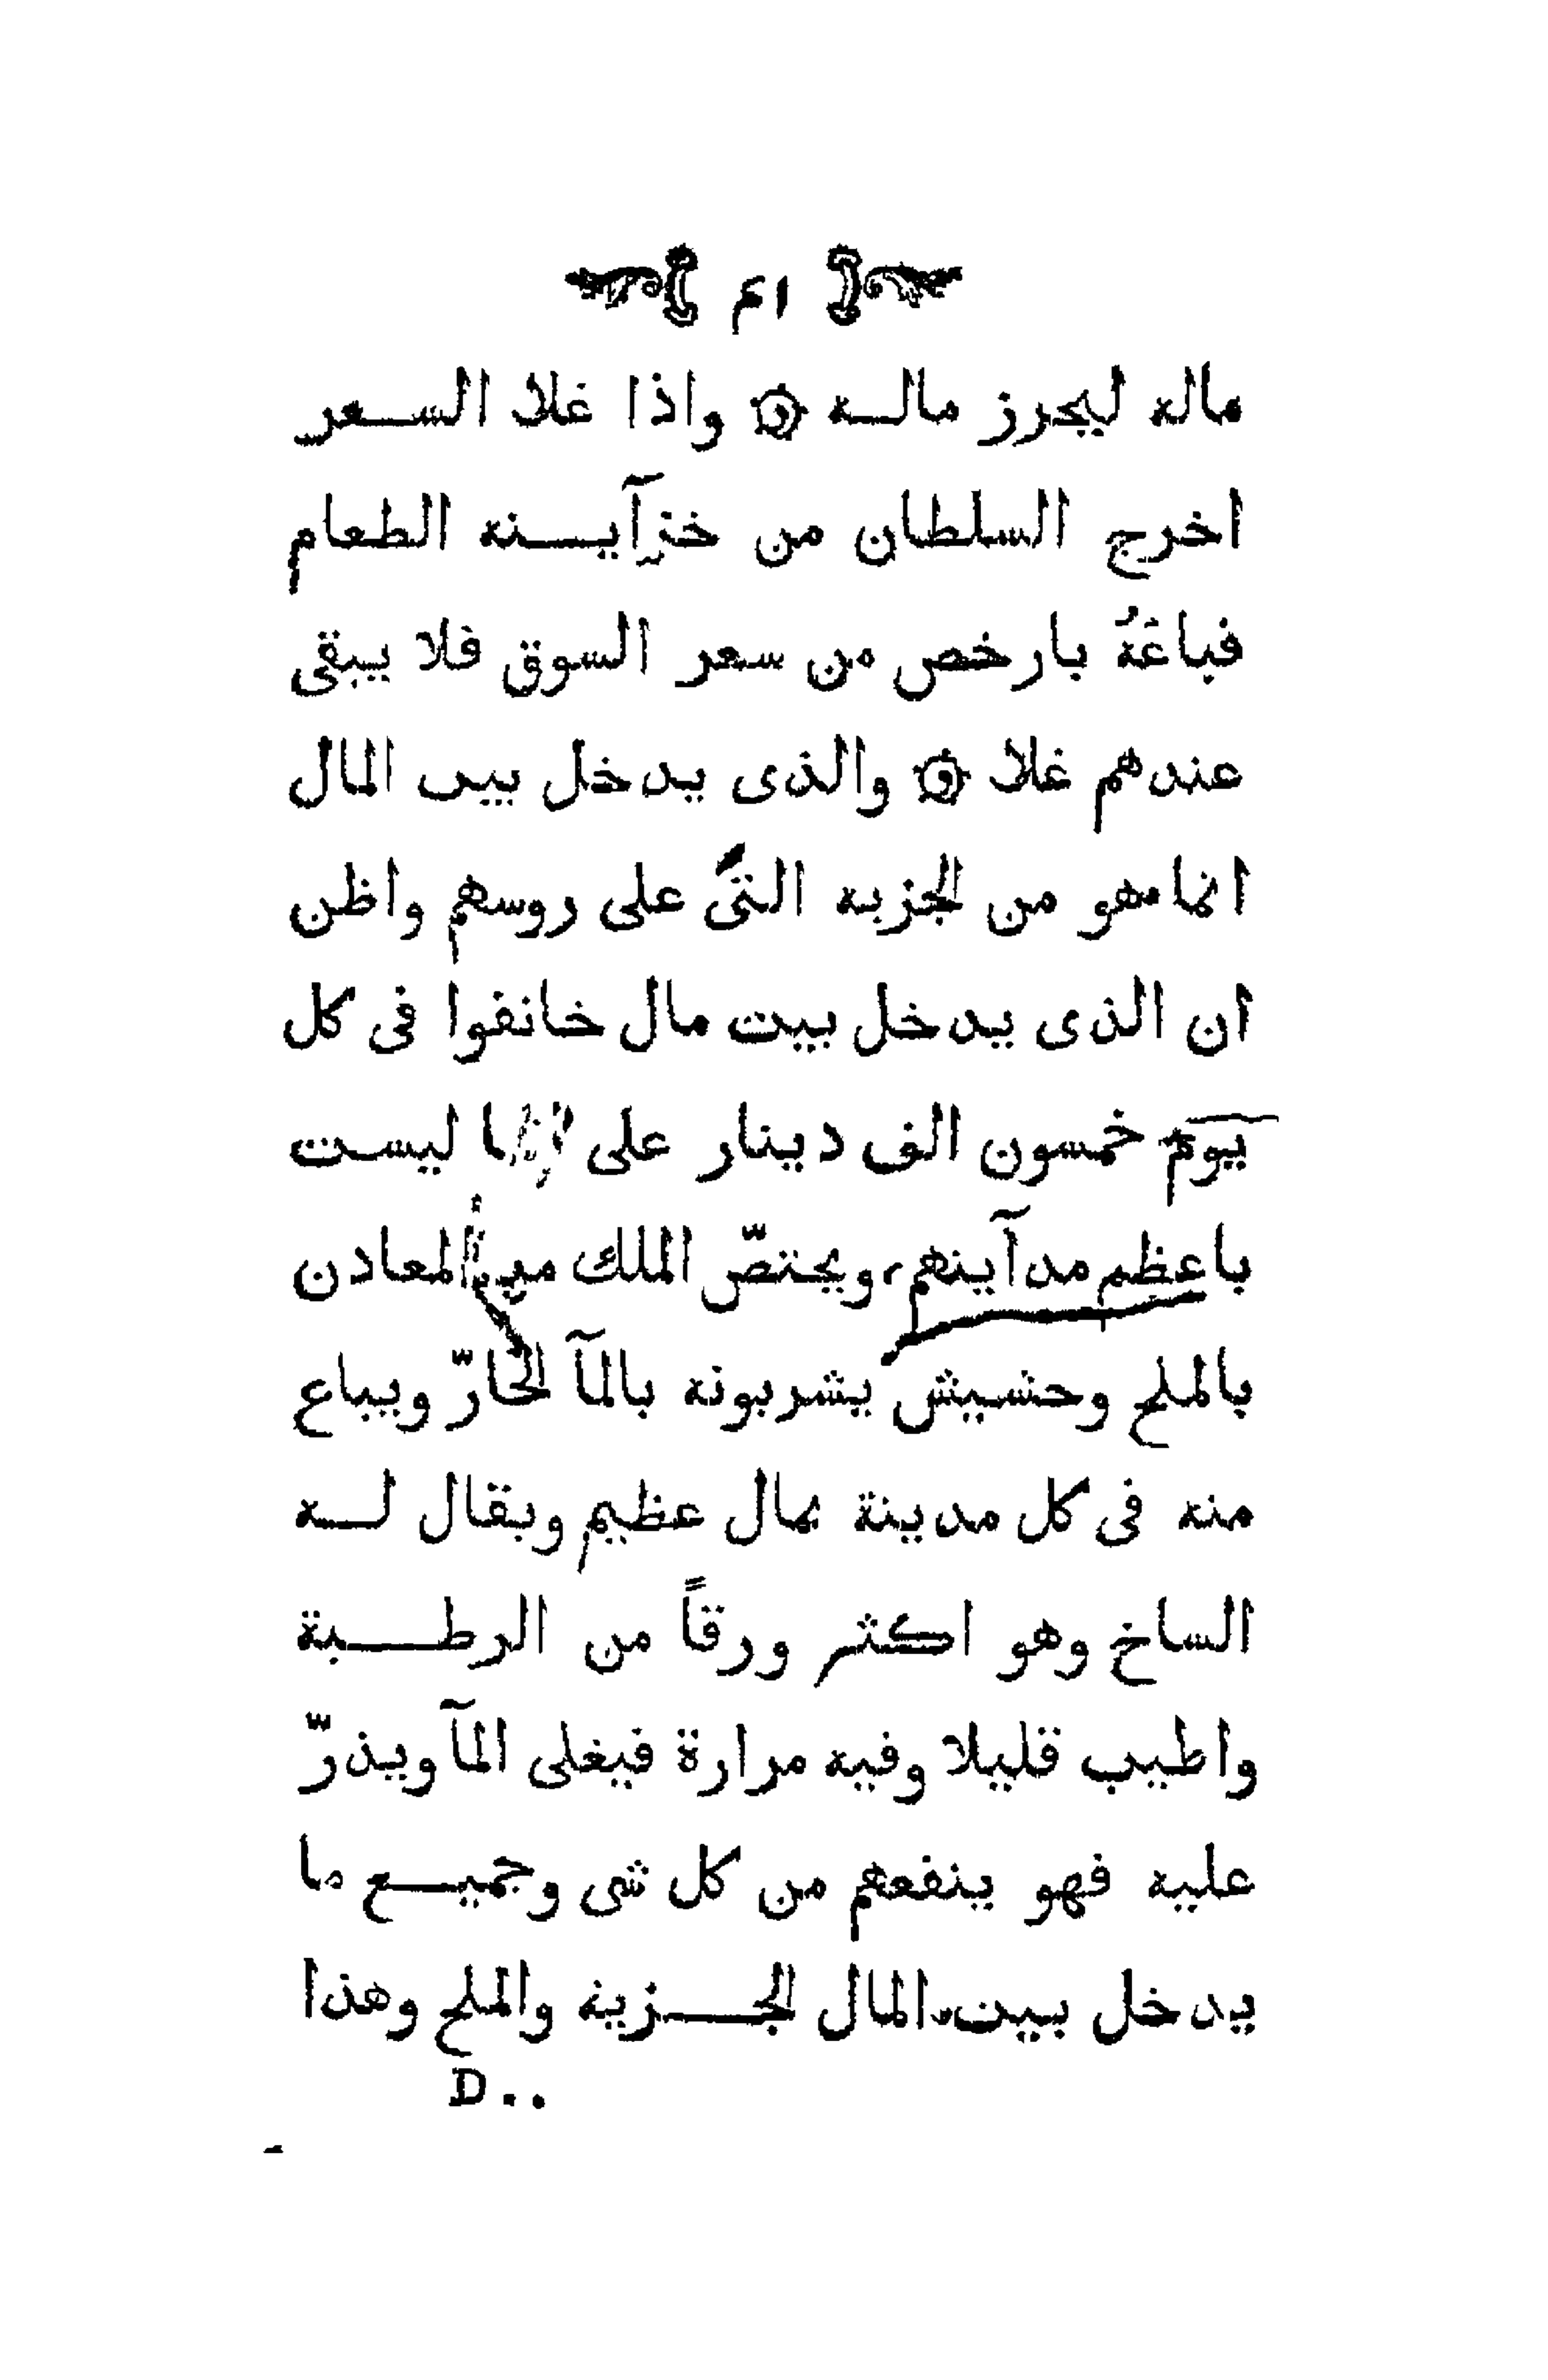 ۴۱
ماله ليحرز مالـه ۞ واذا غلا السـعر
اخرج السلطان من خزآيـنه الطعام
فباعَهُ بارخص من سعر السوق فلا يبقى
عندهم غلا ۞ والذى يدخل بيت المال
انما هو من الجزيه التى على روسهم واظن
ان الذى يدخل بيت مال خانفوا فى كل
يوم خمسون الف دينار على ليست
باعظم مدآينهم، ويختصّ الملك من المعادن
بالملح وحشيش يشربونه بالمآ الحارّ ويباع
منه فى كل مدينة بمال عظيم ويقال لـه
الساخ وهو اكثر ورقاً من الرطـبة
واطيب قليلا وفيه مرارة فيغلى المآ ويذرّ
عليه فهو ينفعهم من كل شى وجميـع ما
يدخل بيت المال الجـزيه والملح وهذا
D..